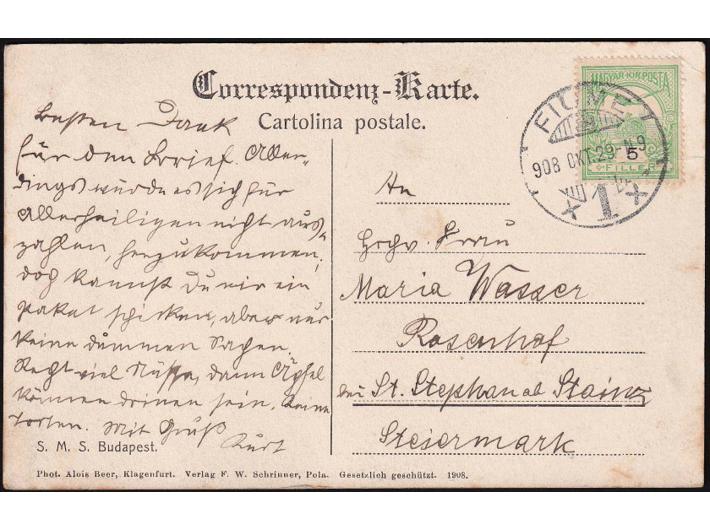 Correspondenz-Karte.
Cartolina postale.
MAGYAR KIR. POSTA
5
FILLÉR
FIUME
908 OKT. 29 - N 9
1
Besten Dank
für den Brief. Aller-
dings würde es sich für
Allerheiligen nicht aus-
zahlen, herzukommen,
doch kannst Du mir ein
Paket schicken, aber nur
keine dummen Sachen.
Recht viel Nüsse, dann Äpfel
können drinen sein. Keine
Torten. Mit Gruß
Kurt
An
Hochv. Frau
Maria Wasser
Rosenhof
bei St. Stephan ob Stainz
Steiermark
S. M. S. Budapest.
Phot. Alois Beer, Klagenfurt. Verlag F. W. Schrinner, Pola. Gesetzlich geschützt. 1908.